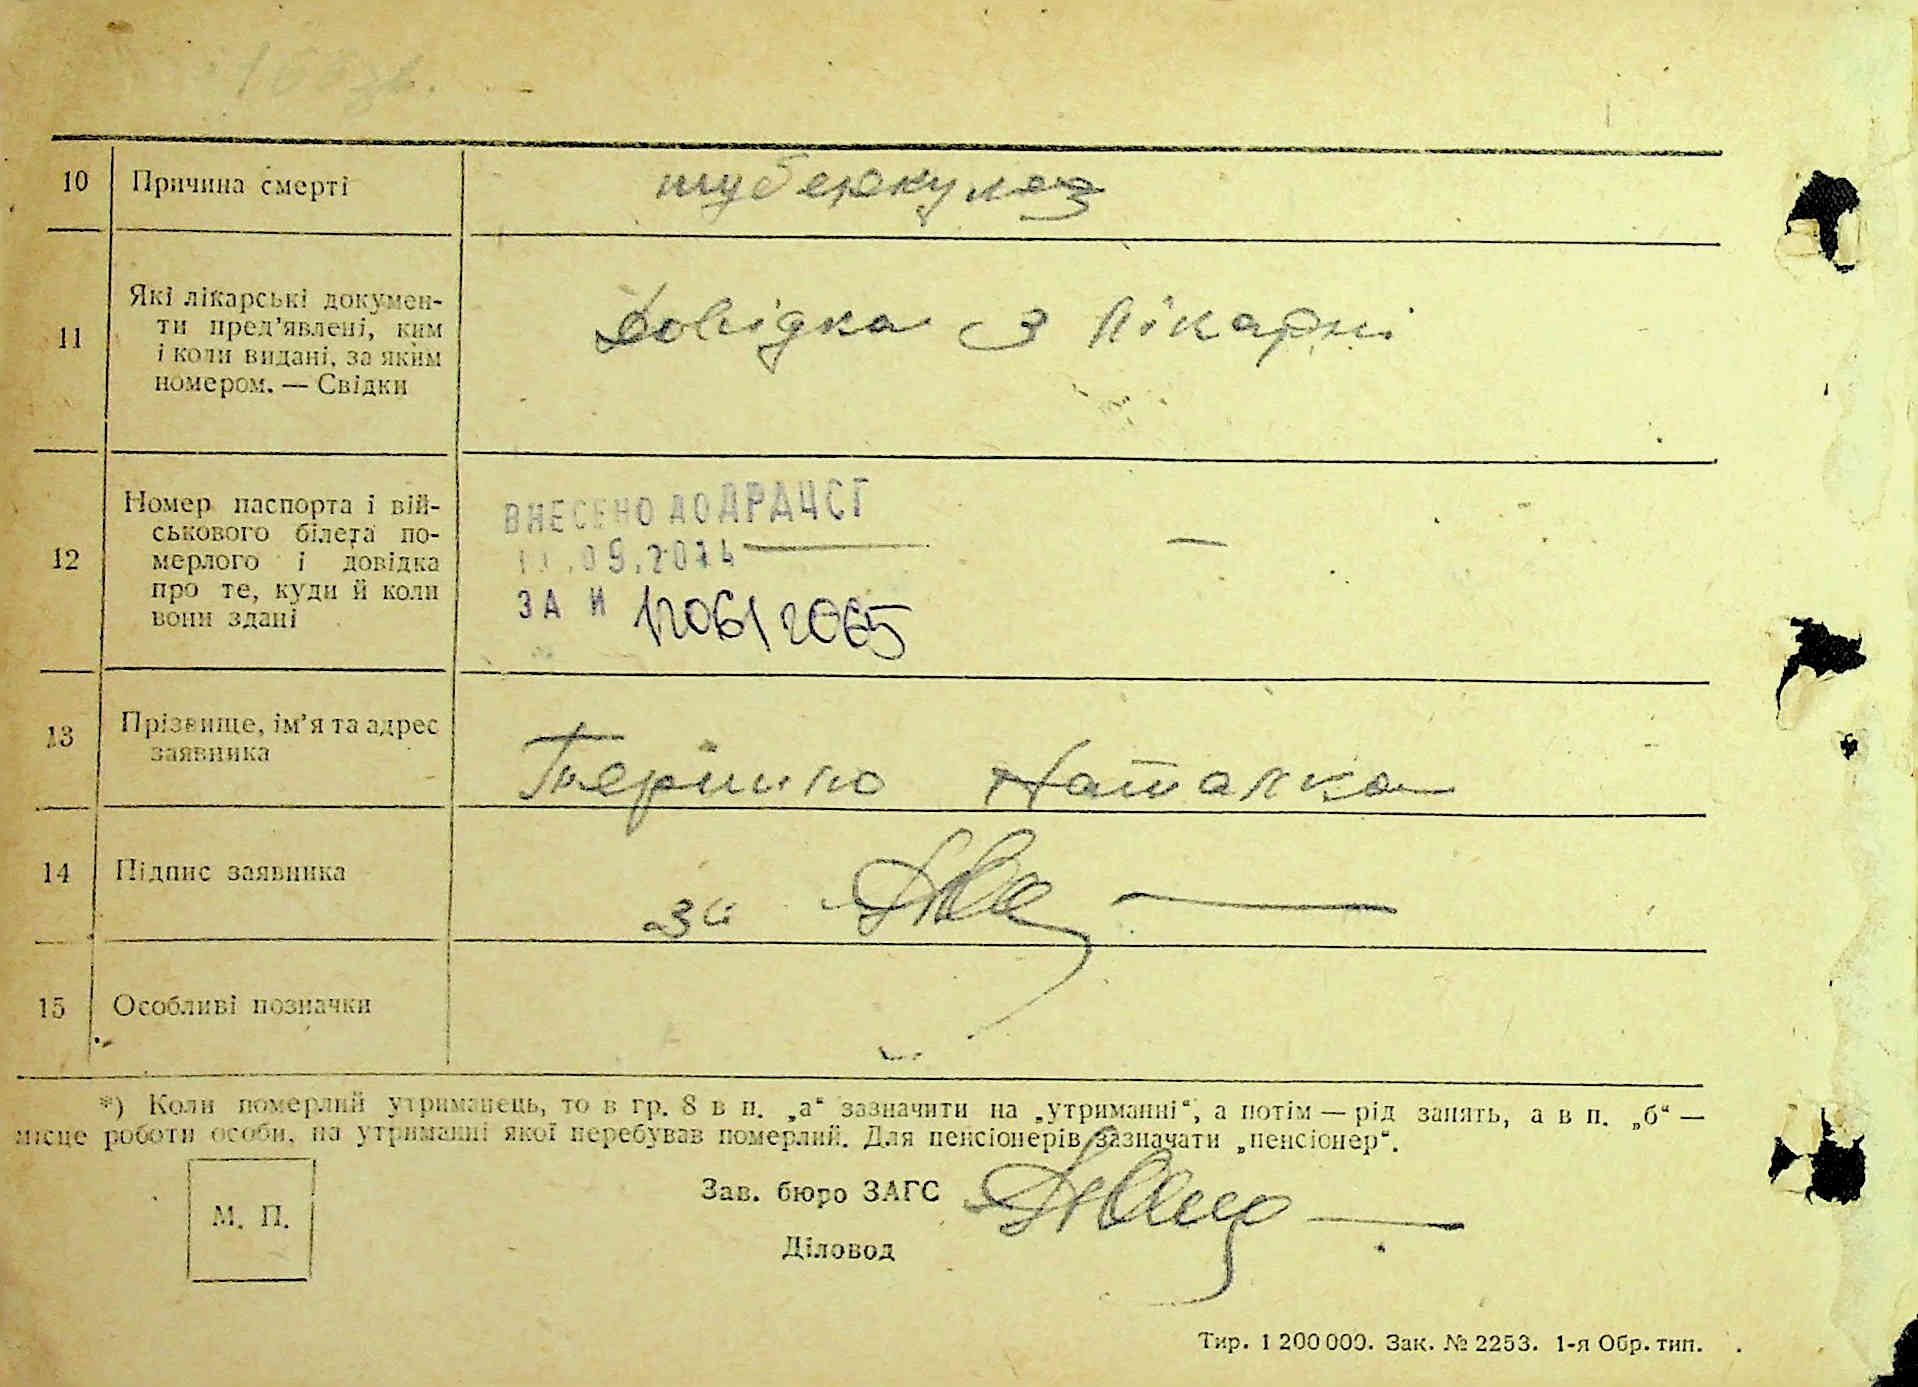 10 Причина смерті туберкулоз
11 Які лікарські докумен-
ти пред’явлені, ким
і коли видані, за яким
номером. — Свідки
Довідка з лікарні
12 Номер паспорта і вій-
ськового білета по-
мерлого і довідка
про те, куди й коли
вони здані
ВНЕСЕНО ДО ДРАЦСГ
.09.2014 —
ЗА № 120612065
13 Прізвище, ім’я та адрес
заявника
Наталка
14 Підпис заявника
за
15 Особливі позначки
*) Коли померлий утриманець, то в гр. 8 в п. „а“ зазначити на „утриманні“, а потім — рід занять, а в п. „б“ —
місце роботи особи, на утриманні якої перебував померлий. Для пенсіонерів зазначати „пенсіонер“.
М. П.
Зав. бюро ЗАГС
Діловод
Тир. 1 200 000. Зак. № 2253. 1-я Обр. тип.